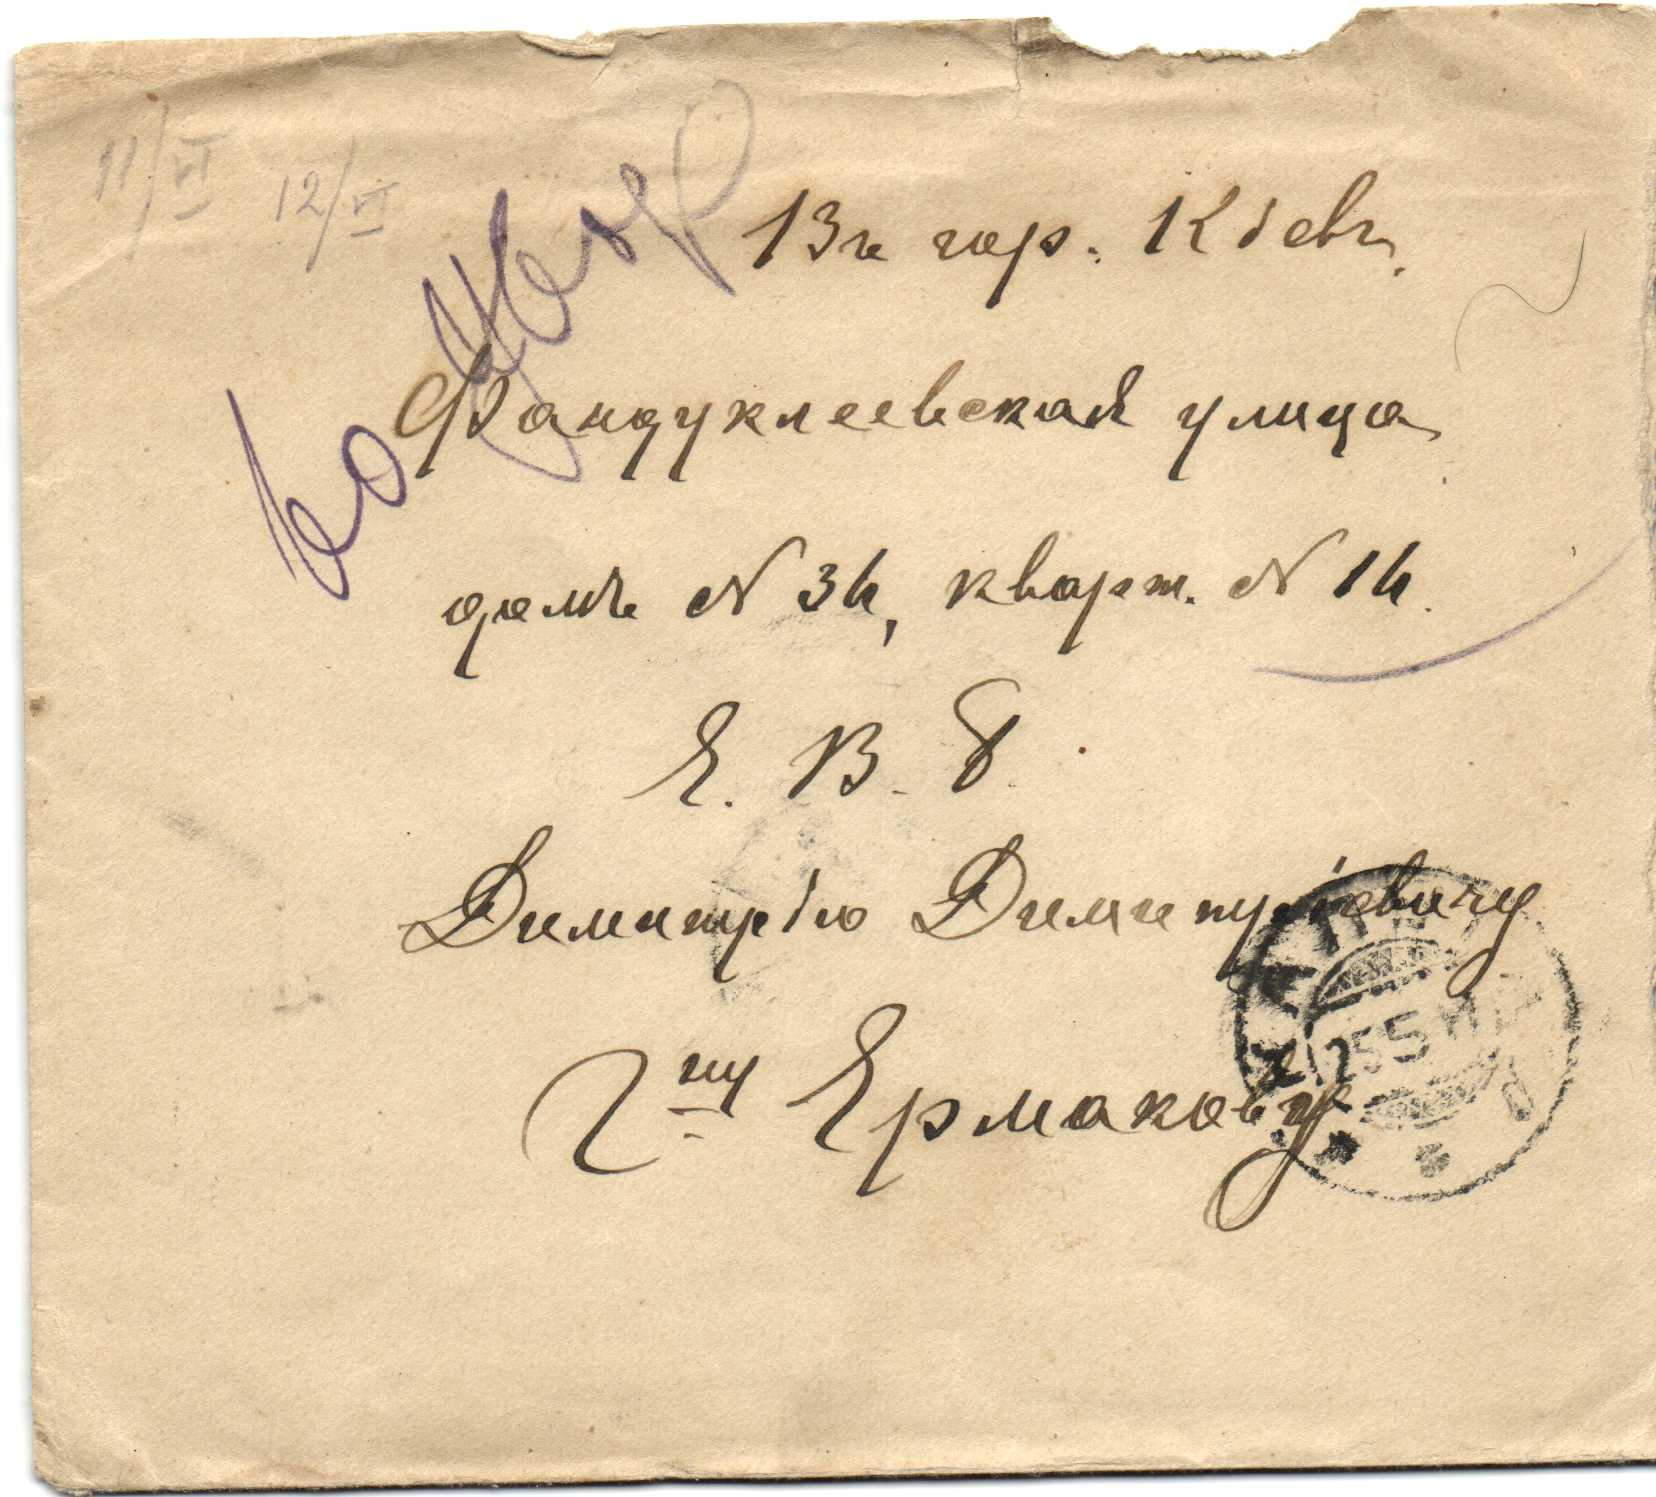 11/VI 12/VI
Въ гор. Кіевъ.
Фандуклеевская улица
домъ N 34, кварт. N 14.
Е. В. Б.
Димитрію Димитріевичу
Г-ну Ермакову
25 5